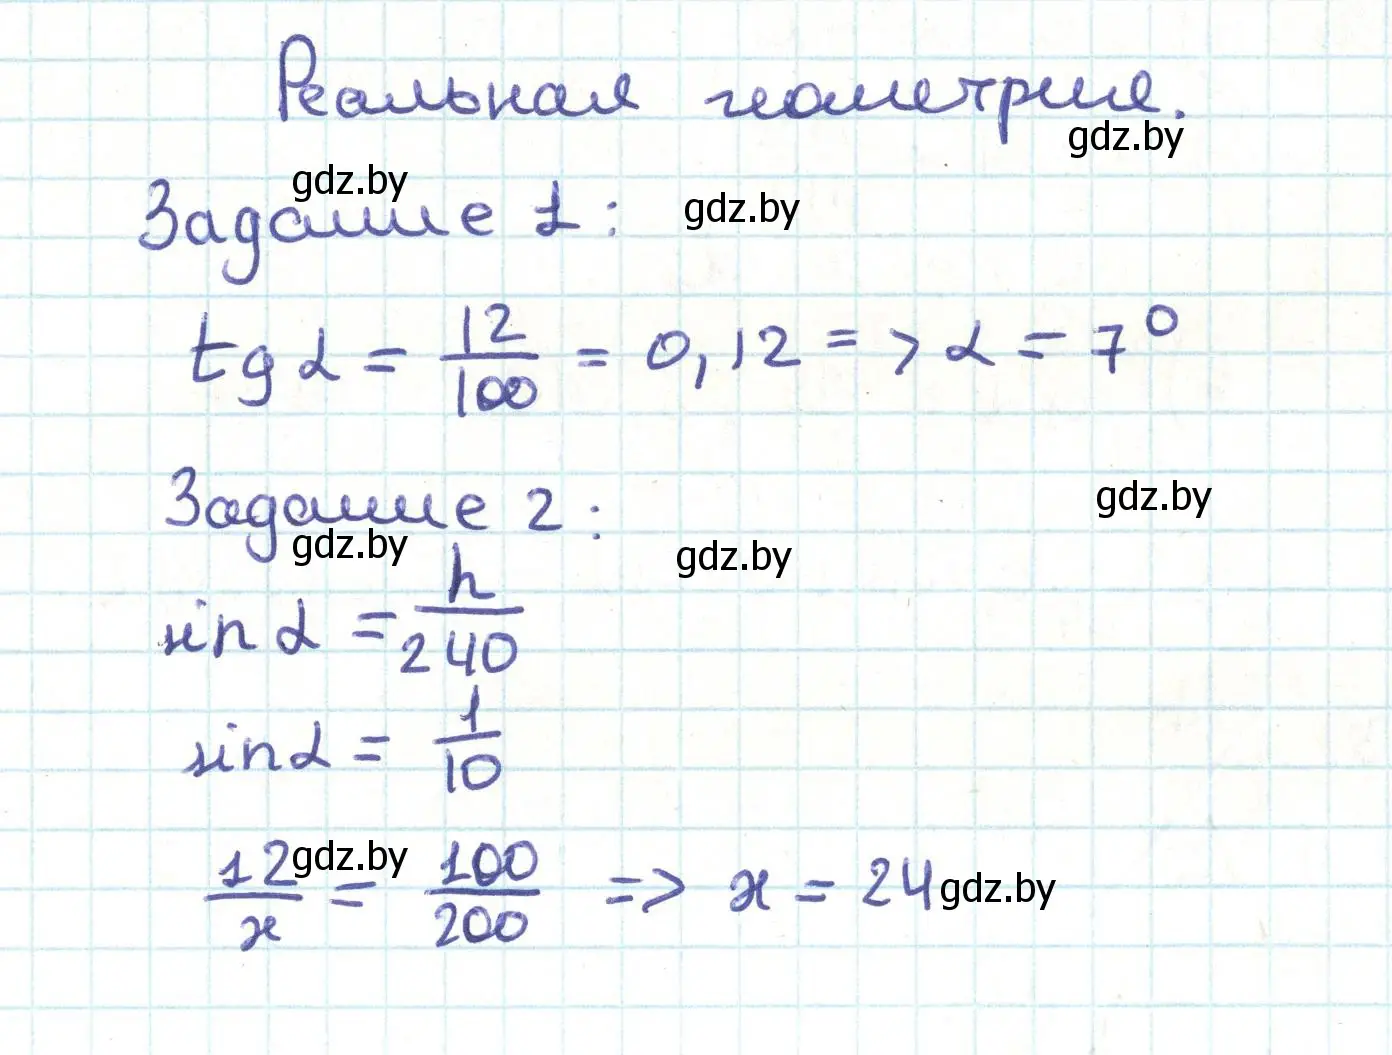 Реальная геометрия.
gdz.by
gdz.by
Задание 1:
gdz.by
tg α = 12/100 = 0,12 => α = 7°
Задание 2:
gdz.by
gdz.by
gdz.by
sin α = h/240
sin α = 1/10
12/x = 100/200 => x = 24
gdz.by
gdz.by